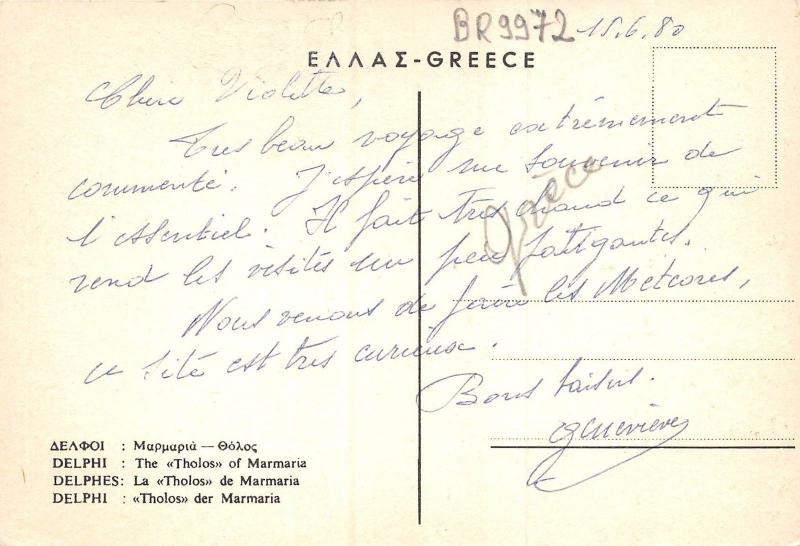 BR9972 15.6.80
ΕΛΛΑΣ-GREECE
Chère Violette,
Très beau voyage extrêmement
commenté. J'espère me souvenir de
l'essentiel. Il fait très chaud ce qui
rend les visites un peu fatigantes.
Grèce
Nous venons de faire les Météores,
ce site est très curieux.
Bons baisers.
Geneviève
ΔΕΛΦΟΙ : Μαρμαριὰ — Θόλος
DELPHI : The «Tholos» of Marmaria
DELPHES: La «Tholos» de Marmaria
DELPHI : «Tholos» der Marmaria